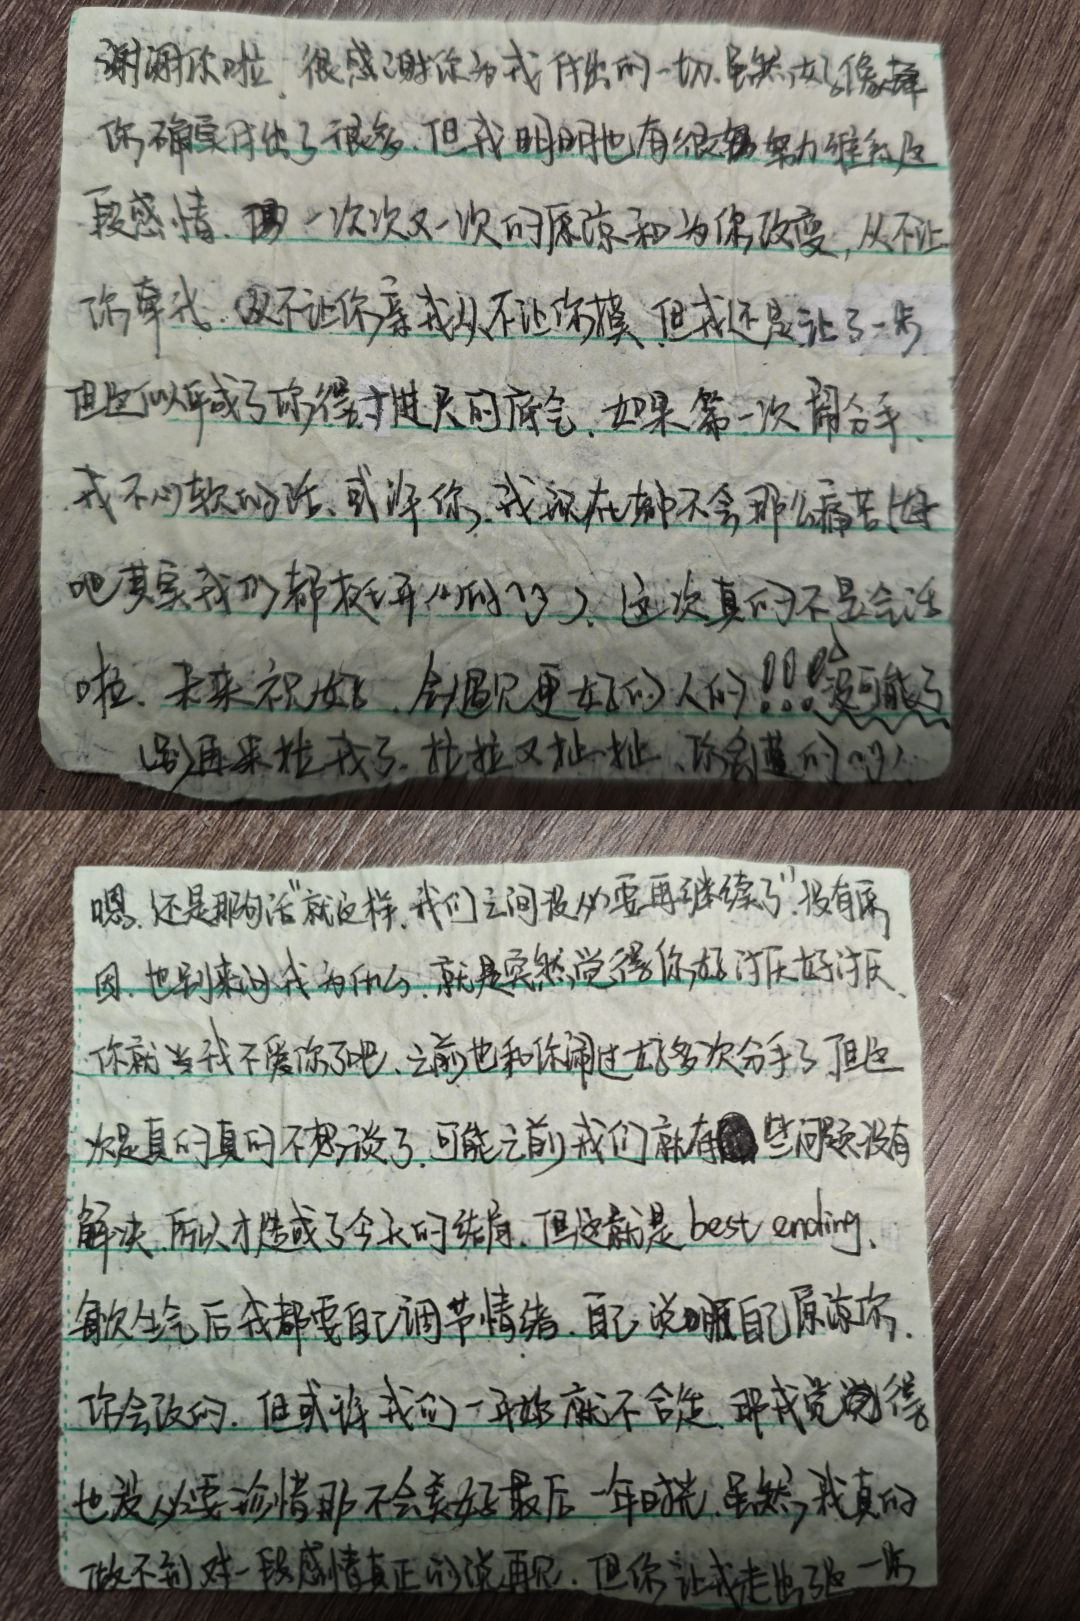 谢谢你啦，很感谢你为我付出的一切，虽然好像
你确实付出了很多，但我明明也有很努力维系这
段感情，一次次又一次的原谅和为你改变，从不让
你牵我，从不让你亲我从不让你摸，但我还是让了一步
但这似乎成了你得寸进尺的底气，如果第一次闹分手，
我不心软的话，或许你，我现在都不会那么痛苦
吧其实我们都挺 这次真的不是会话
啦，未来祝好，会遇见更好的人的!!! 没可能了
别再来拉我了，拉拉又扯扯，你会 的
嗯，还是那句话"就这样，我们之间没必要再继续了"，没有原
因，也别来问我为什么，就是突然觉得你好讨厌好讨厌，
你就当我不爱你了吧，之前也和你闹过好多次分手了但这
次是真的真的不想谈了，可能之前我们就有些问题没有
解决，所以才造成了今天的结局，但这就是best ending，
每次生气后我都要自己调节情绪，自己说服自己原谅你，
你会改的，但或许我们一开始就不合适，那我觉得
也没必要珍惜那不会美好最后一年时光，虽然，我真的
做不到对一段感情真正的说再见，但你让我走出了这一步